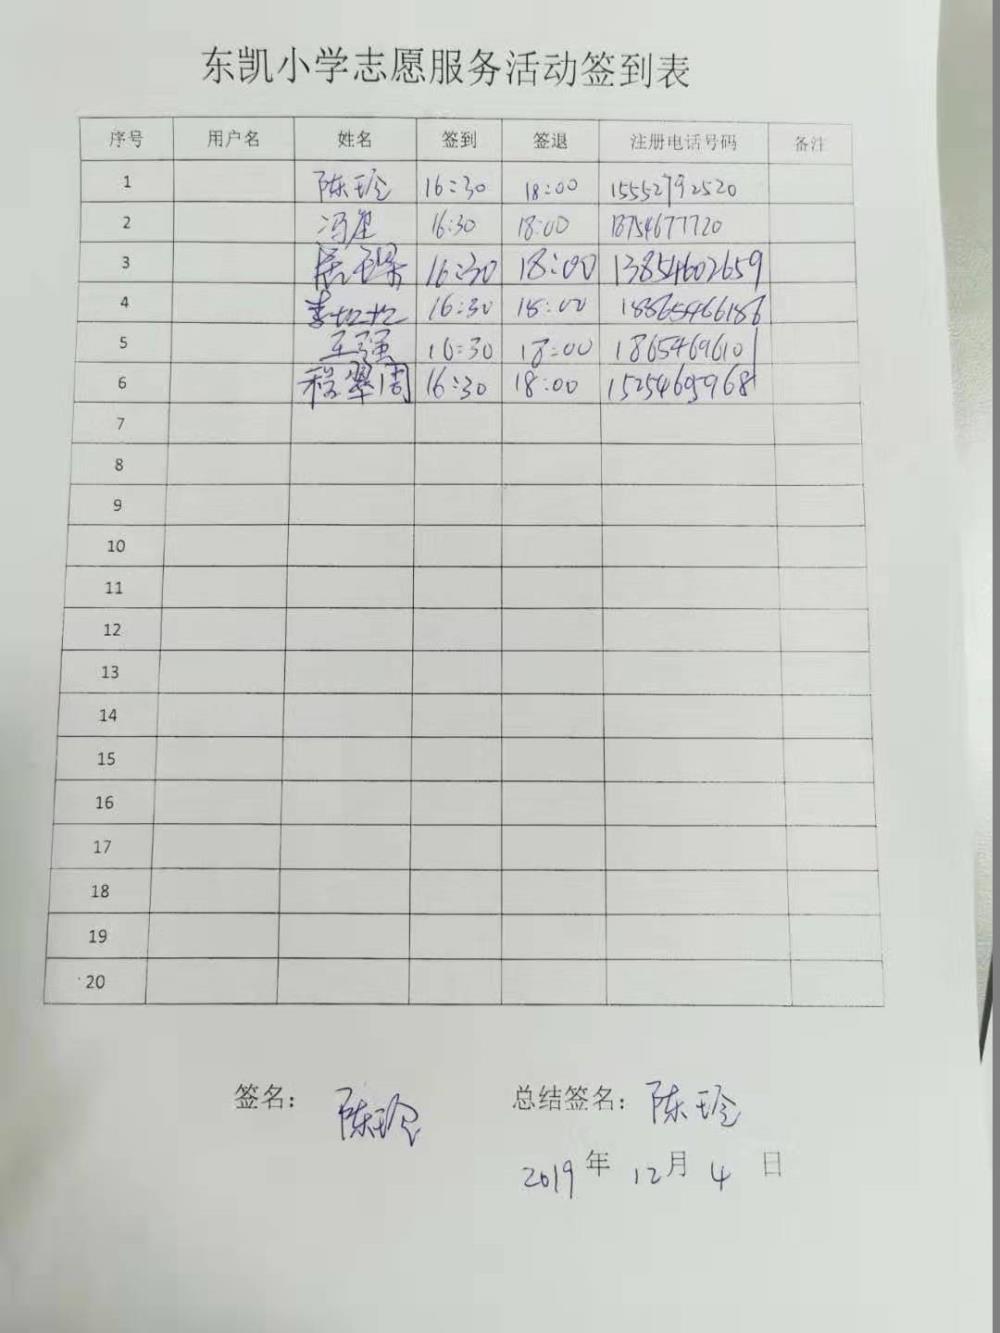 东凯小学志愿服务活动签到表
序号 用户名 姓名 签到 签退 注册电话号码 备注
1 陈玲 16:30 18:00 15552792520
2 冯星 16:30 18:00 18754677720
3 16:30 18:00 13854602659
4 李 16:30 18:00 18865466186
5 王强 16:30 18:00 18654696101
6 程翠周 16:30 18:00 15254695968
7
8
9
10
11
12
13
14
15
16
17
18
19
20
签名： 陈玲 总结签名： 陈玲
2019年12月4日